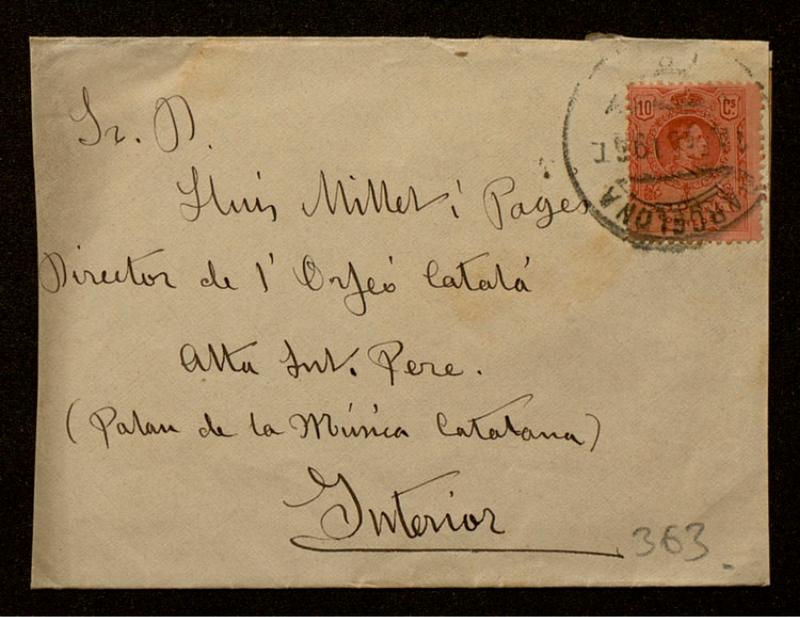 10 Cs
BARCELONA
Sr. D.
Lluis Millet i Pages
Director de l' Orfeó Catalá
Alta Snt. Pere.
(Palau de la Música Catalana)
Interior
363